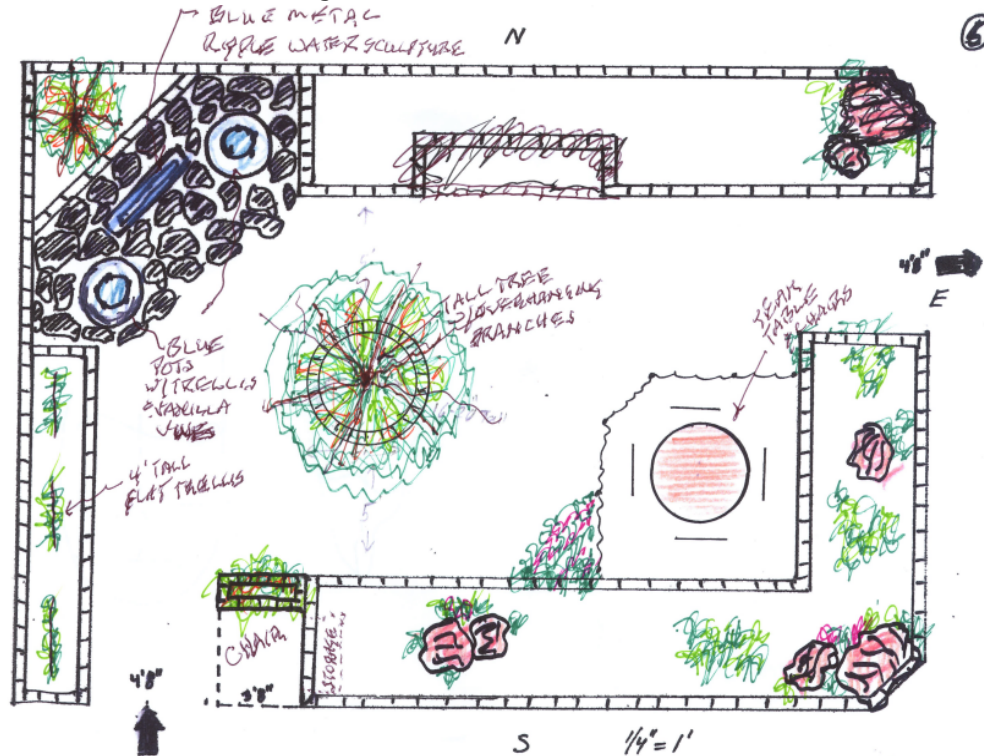 BLUE METAL
RIPPLE WATER SCULPTURE
N
6
4'8"
E
TALL TREE
W/OVERHANGING
BRANCHES
TEAK
TABLE
& CHAIRS
BLUE
POTS
W/TRELLIS
& VANILLA
VINES
4' TALL
FLAT TRELLIS
CHAIR
STORAGE
3'8"
4'8"
S
1/4" = 1'